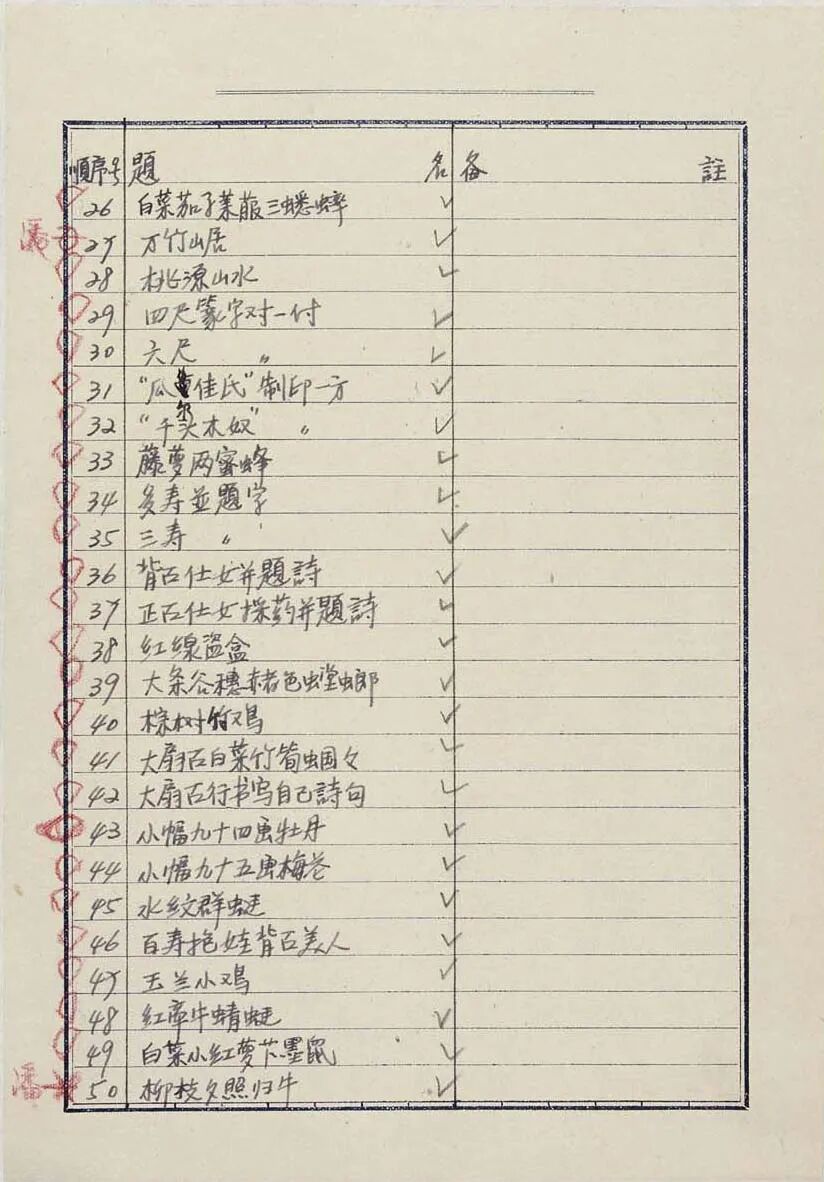 順序号 題 名 备 註
26 白菜茄子莱菔三蟋蟀
27 万竹山居
28 桃源山水
29 四尺篆字对一付
30 六尺 〃
31 "瓜尔佳氏"制印一方
32 "千头木奴" 〃
33 藤萝两蜜蜂
34 多寿並題字
35 三寿 〃
36 背面仕女并題詩
37 正面仕女採药并題詩
38 红線盗盒
39 大条谷穗赭色螳螂
40 棕树竹鸡
41 大扇面白菜竹筍蝈々
42 大扇面行书写自己詩句
43 小幅九十四画牡丹
44 小幅九十五画梅花
45 水纹群蜓
46 百寿抱娃背面美人
47 玉兰小鸡
48 红牵牛蜻蜓
49 白菜小红萝卜墨鼠
50 柳枝夕照归牛